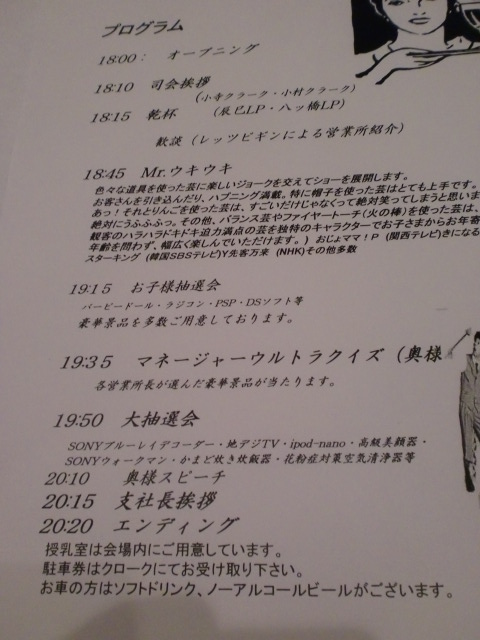 プログラム
18:00: オープニング
18:10 司会挨拶
(小寺クラーク・小村クラーク)
18:15 乾杯 (辰巳LP・八ッ橋LP)
歓談(レッツビギンによる営業所紹介)
18:45 Mr.ウキウキ
色々な道具を使った芸に楽しいジョークを交えてショーを展開します。
お客さんを引き込んだり、ハプニング満載。特に帽子を使った芸はとても上手です。
あっ!それとりんごを使った芸は、すごいだけじゃなくって絶対笑ってしまうと思いま
絶対にうふふふっ。その他、バランス芸やファイヤートーチ(火の棒)を使った芸は、
観客のハラハラドキドキ迫力満点の芸を独特のキャラクターでお子さまからお年寄
年齢を問わず、幅広く楽しんでいただけます。) おじょママ!P (関西テレビ)きになる
スターキング (韓国SBSテレビ)Y先客万来 (NHK)その他多数
19:15 お子様抽選会
バービードール・ラジコン・PSP・DSソフト等
豪華景品を多数ご用意しております。
19:35 マネージャーウルトラクイズ(奥様
各営業所長が選んだ豪華景品が当たります。
19:50 大抽選会
SONYブルーレイデコーダー・地デジTV・ipod-nano・高級美顔器・
SONYウォークマン・かまど炊き炊飯器・花粉症対策空気清浄器等
20:10 奥様スピーチ
20:15 支社長挨拶
20:20 エンディング
授乳室は会場内にご用意しています。
駐車券はクロークにてお受け取り下さい。
お車の方はソフトドリンク、ノーアルコールビールがございます。